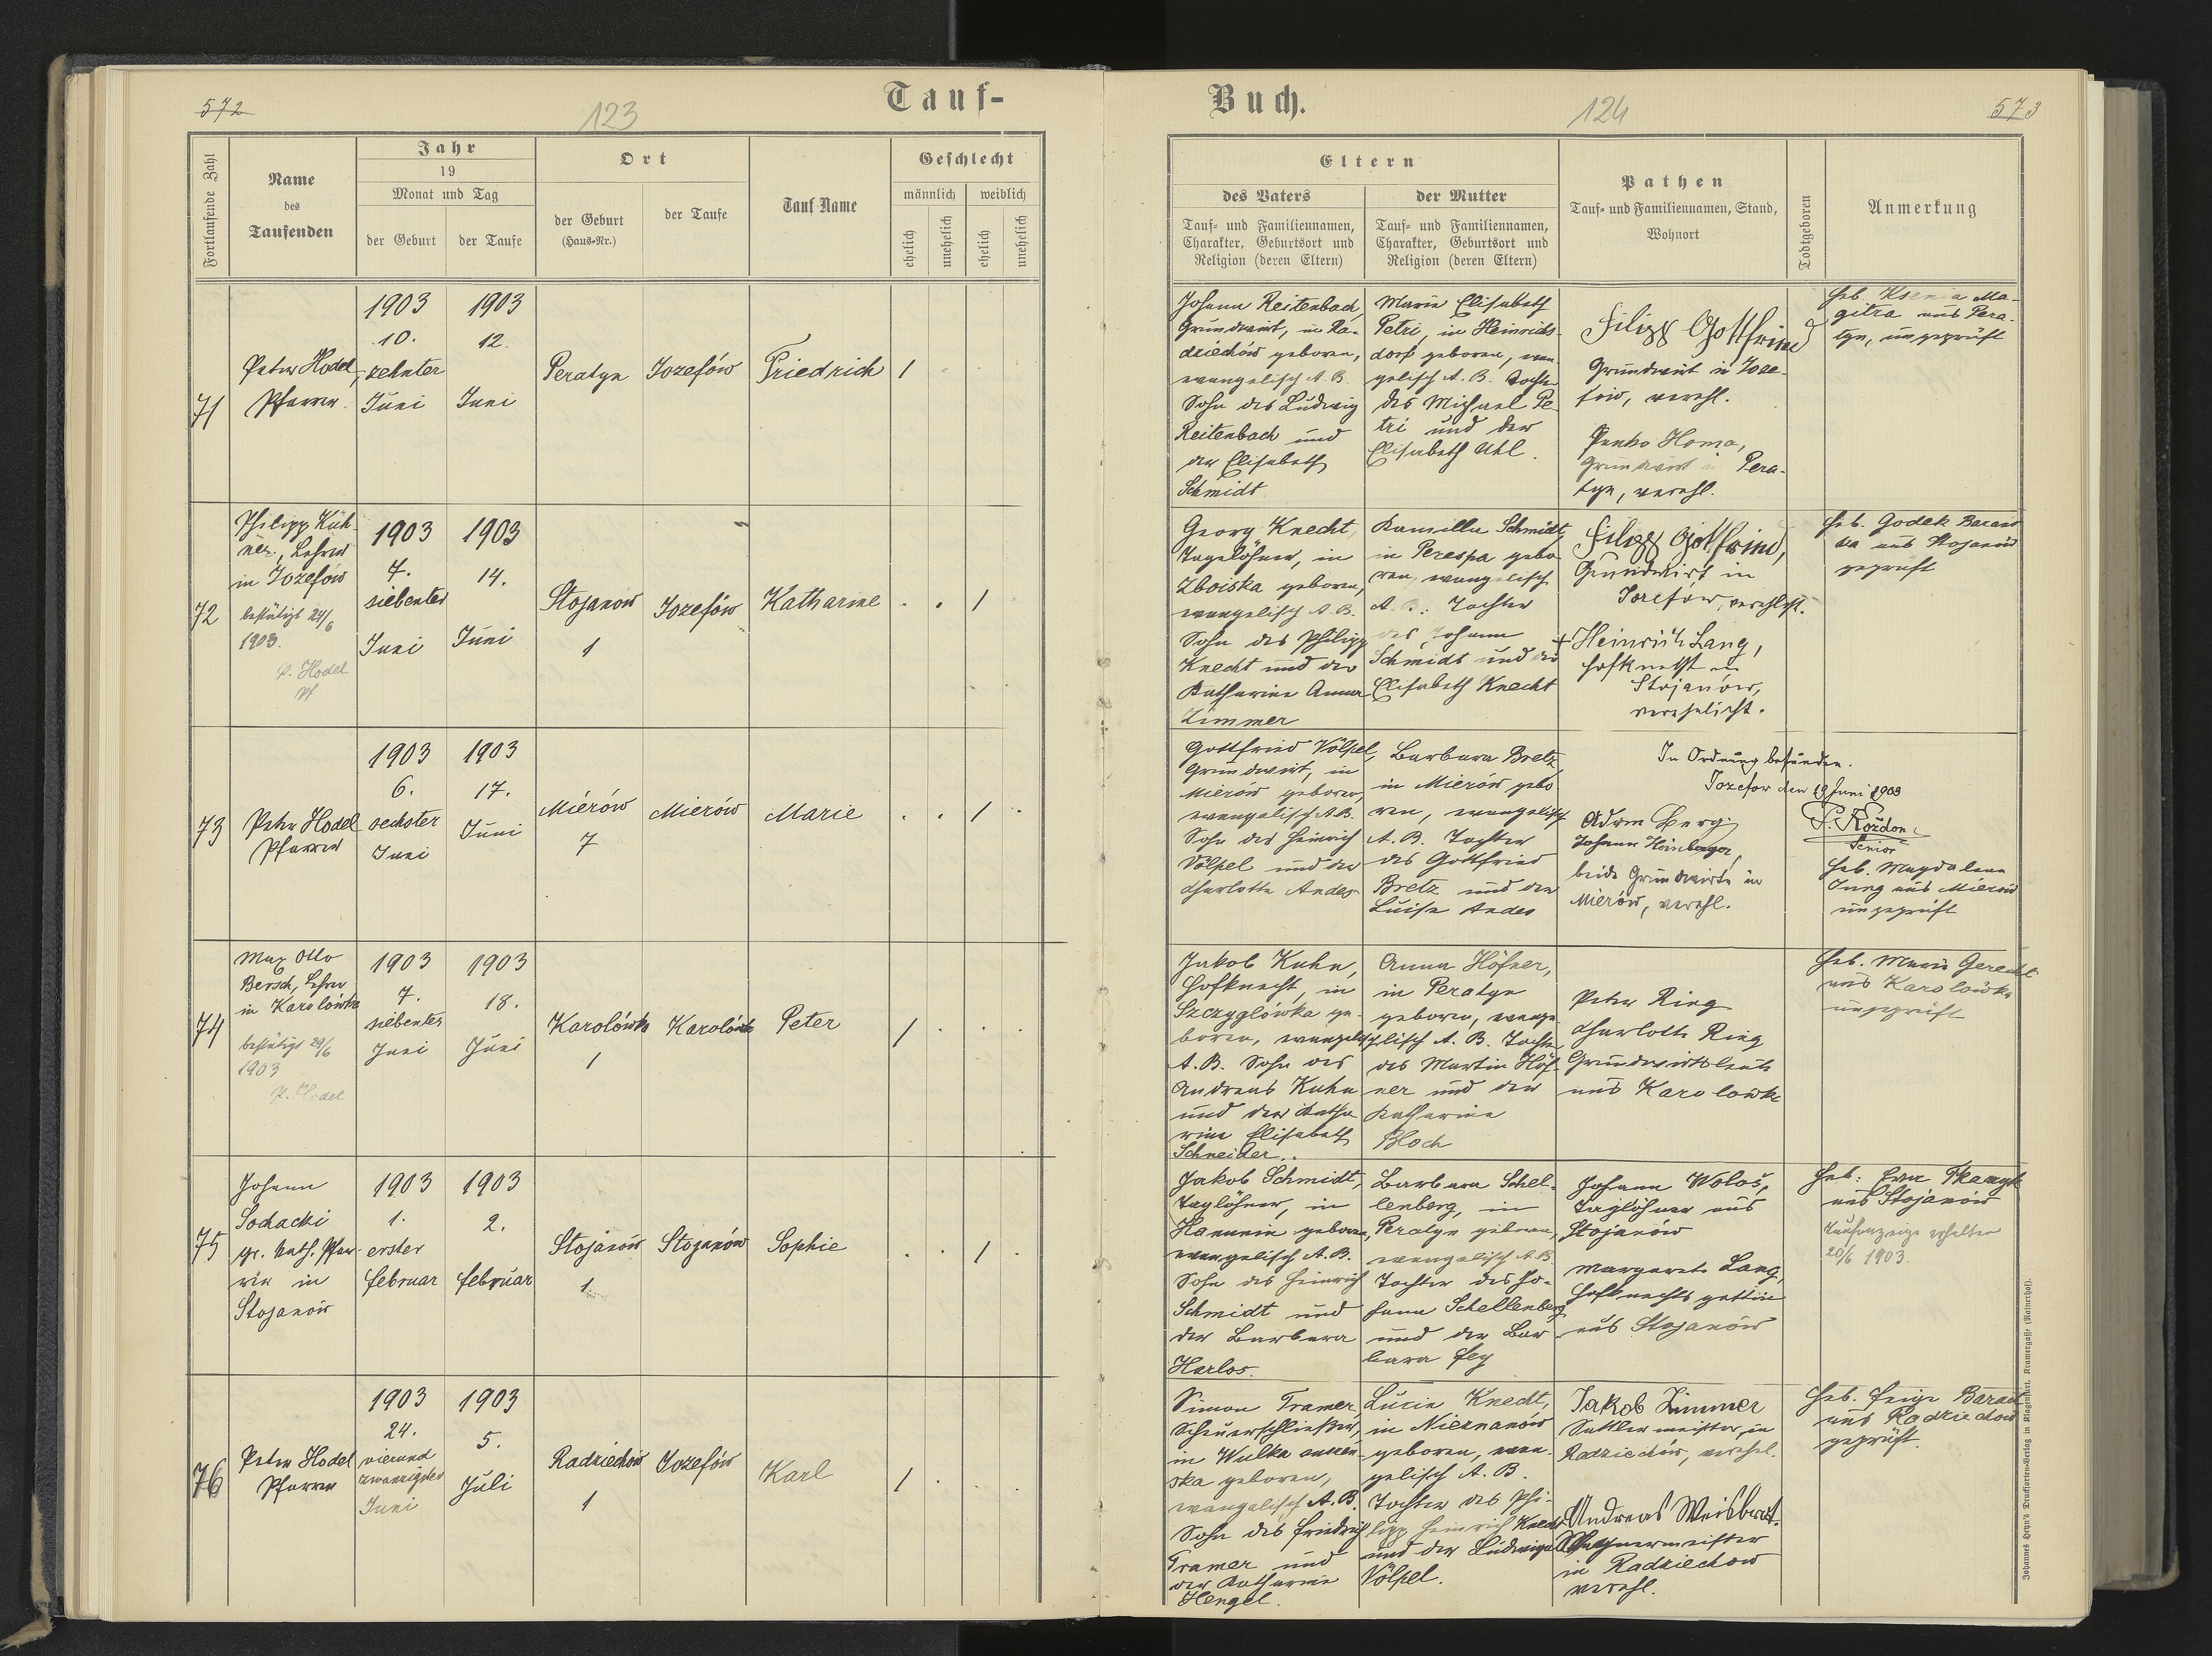 572
123
Tauf-
Fortlaufende Zahl
Name
des
Taufenden
Jahr
19
Monat und Tag
der Geburt
der Taufe
Ort
der Geburt
(Haus-Nr.)
der Taufe
Tauf-Name
Geschlecht
männlich
weiblich
ehelich
unehelich
ehelich
unehelich
71
Peter Hodel,
Pfarrer.
1903
10.
zehnter
Juni
1903
12.
Juni
Peratyn
Jozefów
Friedrich
1
72
Philipp Küh-
ner, Lehrer
in Jozefów
bestätigt 24/6
1903.
P. Hodel
Pf
1903
7.
siebenter
Juni
1903
14.
Juni
Stojanow
1
Jozefów
Katharine
1
73
Peter Hodel
Pfarrer
1903
6.
sechster
Juni
1903
17.
Juni
Mierów
7
Mierów
Marie
1
74
Max Otto
Bersch, Lehrer
in Karolówka
bestätigt 29/6
1903
P. Hodel
1903
7.
siebenter
Juni
1903
18.
Juni
Karolówka
1
Karolówka
Peter
1
75
Johann
Sochacki
gr. kath. Pfar-
rer in
Stojanów
1903
1.
erster
Februar
1903
2.
Februar
Stojanów
1.
Stojanów
Sophie
1
76
Peter Hodel
Pfarrer
1903
24.
vierund
zwanzigster
Juni
1903
5.
Juli
Radziechów
1
Jozefów
Karl
1
Buch.
124
573
Eltern
des Vaters
Tauf- und Familiennamen,
Charakter, Geburtsort und
Religion (deren Eltern)
der Mutter
Tauf- und Familiennamen,
Charakter, Geburtsort und
Religion (deren Eltern)
Pathen
Tauf- und Familiennamen, Stand,
Wohnort
Todtgeboren
Anmerkung
Johann Reitenbach,
Grundwirt, in Ra-
dziechów geboren,
evangelisch A. B.
Sohn des Ludwig
Reitenbach und
der Elisabeth
Schmidt
Marie Elisabeth
Petri, in Heinrichs-
dorf geboren, evan-
gelisch A. B. Tochter
des Michael Pe-
tri und der
Elisabeth Uhl.
Filipp Gottfried
Grundwirt in Joze-
fów, verehl.
Panko Homa,
Grundwirt in Pera-
tyn, verehl.
Heb. Ksenia Ma-
gitra aus Pera-
tyn, ungeprüft
Georg Knecht,
Tagelöhner, in
Zboiska geboren,
evangelisch A. B.
Sohn des Philipp
Knecht und der
Katharine Anna
Zimmer
Kamilla Schmidt,
in Perespa gebo-
ren, evangelisch
A. B. Tochter
des Johann
Schmidt und der
Elisabeth Knecht
Filipp Gottfried,
Grundwirt in
Jozefow, verehlicht.
+ Heinrich Lang,
Hofknecht in
Stojanów,
verehelicht.
Heb. Godek
aus Stojanów
geprüft
Gottfried Völpel,
Grundwirt, in
Mierów geboren,
evangelisch A.B.
Sohn des Heinrich
Völpel und der
Charlotte Andes
Barbara Bretz
in Mierów gebo
ren, evangelisch
A. B. Tochter
des Gottfried
Bretz und der
Luise Andes
In Ordnung befunden.
Jozefow den 19 Juni 1903
Senior
Adam Berg
Johann Heinberger
beide Grundwirte in
Mierów, verehl.
Heb. Magdalena
Jung aus Mierów
ungeprüft
Jakob Kuhn,
Hofknecht, in
Szczyglówka ge-
boren, evangelisch
A. B. Sohn des
Andreas Kuhn
und der Katha
rine Elisabeth
Schneider.
Anna Höfner,
in Peratyn
geboren, evange
lisch A. B. Tochter
des Martin Höf-
ner und der
Katharine
Bloch
Peter Ring
Charlotte Ring
Grundwirtsleute
aus Karolowka
Heb. Marie Gerecht
aus Karolówka
ungeprüft
Jakob Schmidt,
Taglöhner, in
Hanunin geboren,
evangelisch A. B.
Sohn des Heinrich
Schmidt und
der Barbara
Harlos.
Barbara Schel-
lenberg, in
Peratyn geboren,
evangelisch A.B.
Tochter des Jo-
hann Schellenberg
und der Bar
bara Fey
Johann Wołoś,
Taglöhner aus
Stojanów
Margarete Lang,
Hofknechts gattin
aus Stojanów
Heb: Ewa
aus Stojanów
Taufanzeige erhalten
20/6 1903.
Simon Tramer,
in Wulka
ska geboren,
evangelisch A. B.
Sohn des Friedrich
Tramer und
der Katharine
Hengel.
Lucia Knecht,
in Niezнанów
geboren, evan-
gelisch A. B.
Tochter des Phi-
lipp Heinrich Knecht
und der Ludwiga
Völpel.
Jakob Zimmer
Sattlermeister, in
Radziechów, verehel.
Andreas
in Radziechow
verehl.
Heb. Feige
aus Radziechów
geprüft.
Johannes Heyn's Drucksorten-Verlag in Klagenfurt, Kramergasse (Rainerhof).